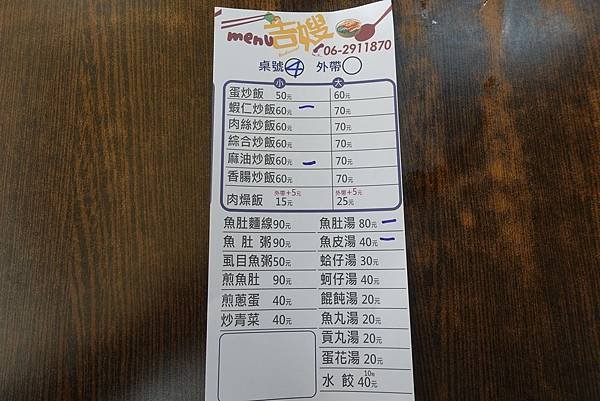 menu 吉嫂
06-2911870
桌號 4 外帶
小 大
蛋炒飯 50元 60元
蝦仁炒飯 60元 一 70元
肉絲炒飯 60元 70元
綜合炒飯 60元 70元
麻油炒飯 60元 一 70元
香腸炒飯 60元 70元
外帶+5元 外帶+5元
肉燥飯 15元 25元
魚肚麵線 90元 魚肚湯 80元 一
魚肚粥 90元 魚皮湯 40元 一
虱目魚粥 50元 蛤仔湯 30元
煎魚肚 90元 蚵仔湯 40元
煎蔥蛋 40元 餛飩湯 20元
炒青菜 40元 魚丸湯 20元
貢丸湯 20元
蛋花湯 20元
水餃 10粒 40元